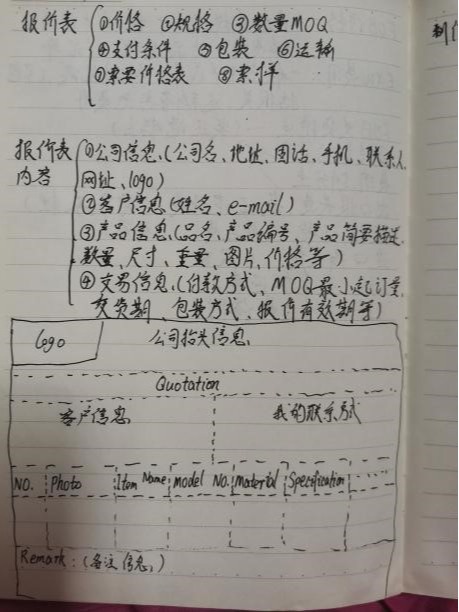 报价表 ①价格 ②规格 ③数量MOQ
④支付条件 ⑤包装 ⑥运输
⑦索要价格表 ⑧索样
报价表 ①公司信息.(公司名、地址、固话、手机、联系人
内容 网址、logo)
②客户信息(姓名、e-mail)
③产品信息(品名、产品编号、产品简要描述.
数量、尺寸、重量、图片、价格等)
④交易信息.(付款方式、MOQ最小起订量.
交货期、包装方式、报价有效期等)
logo 公司抬头信息.
Quotation
客户信息 我的联系方式
NO. Photo Item Name Model NO. Material Specification ......
Remark:(备注信息.)